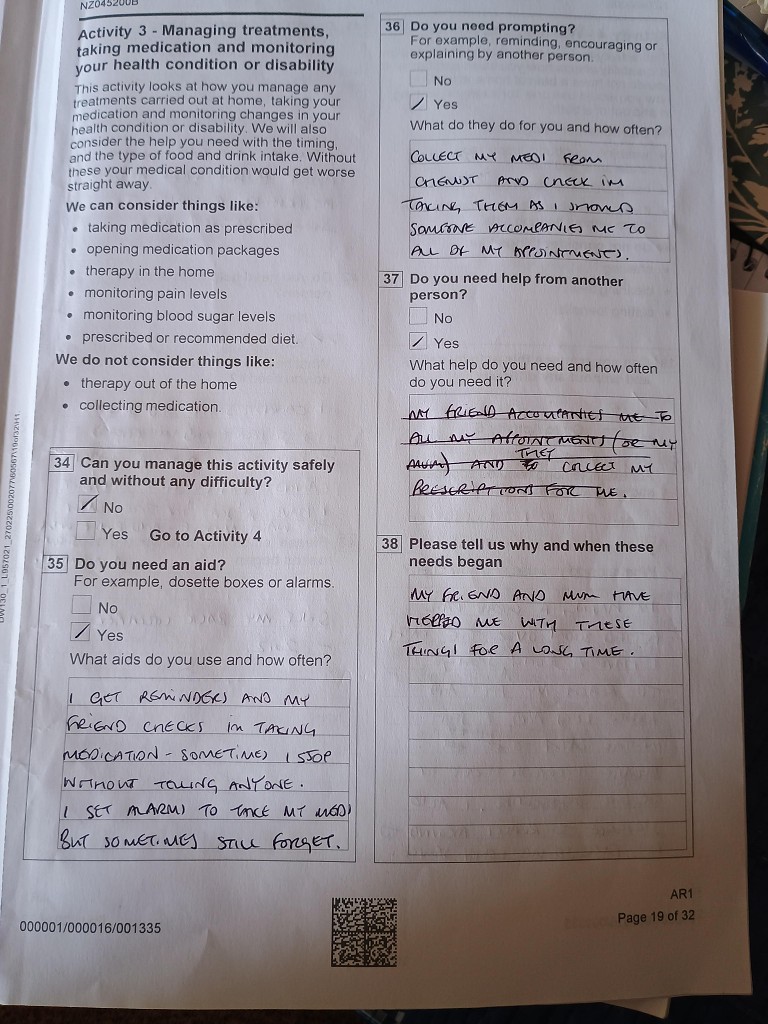 NZ045200B
Activity 3 - Managing treatments,
taking medication and monitoring
your health condition or disability
This activity looks at how you manage any
treatments carried out at home, taking your
medication and monitoring changes in your
health condition or disability. We will also
consider the help you need with the timing,
and the type of food and drink intake. Without
these your medical condition would get worse
straight away.
We can consider things like:
• taking medication as prescribed
• opening medication packages
• therapy in the home
• monitoring pain levels
• monitoring blood sugar levels
• prescribed or recommended diet.
We do not consider things like:
• therapy out of the home
• collecting medication.
34 Can you manage this activity safely
and without any difficulty?
No
Yes Go to Activity 4
35 Do you need an aid?
For example, dosette boxes or alarms.
No
Yes
What aids do you use and how often?
I GET REMINDERS AND MY
FRIEND CHECKS I'M TAKING
MEDICATION - SOMETIMES I STOP
WITHOUT TELLING ANYONE.
I SET ALARMS TO TAKE MY MEDS
BUT SOMETIMES STILL FORGET.
36 Do you need prompting?
For example, reminding, encouraging or
explaining by another person.
No
Yes
What do they do for you and how often?
COLLECT MY MEDS FROM
CHEMIST AND CHECK I'M
TAKING THEM AS I SHOULD
SOMEONE ACCOMPANIES ME TO
ALL OF MY APPOINTMENTS.
37 Do you need help from another
person?
No
Yes
What help do you need and how often
do you need it?
MY FRIEND ACCOMPANIES ME TO
ALL MY APPOINTMENTS (OR MY
MUM) AND THEY COLLECT MY
PRESCRIPTIONS FOR ME.
38 Please tell us why and when these
needs began
MY FRIEND AND MUM HAVE
HELPED ME WITH THESE
THINGS FOR A LONG TIME.
000001/000016/001335
AR1
Page 19 of 32